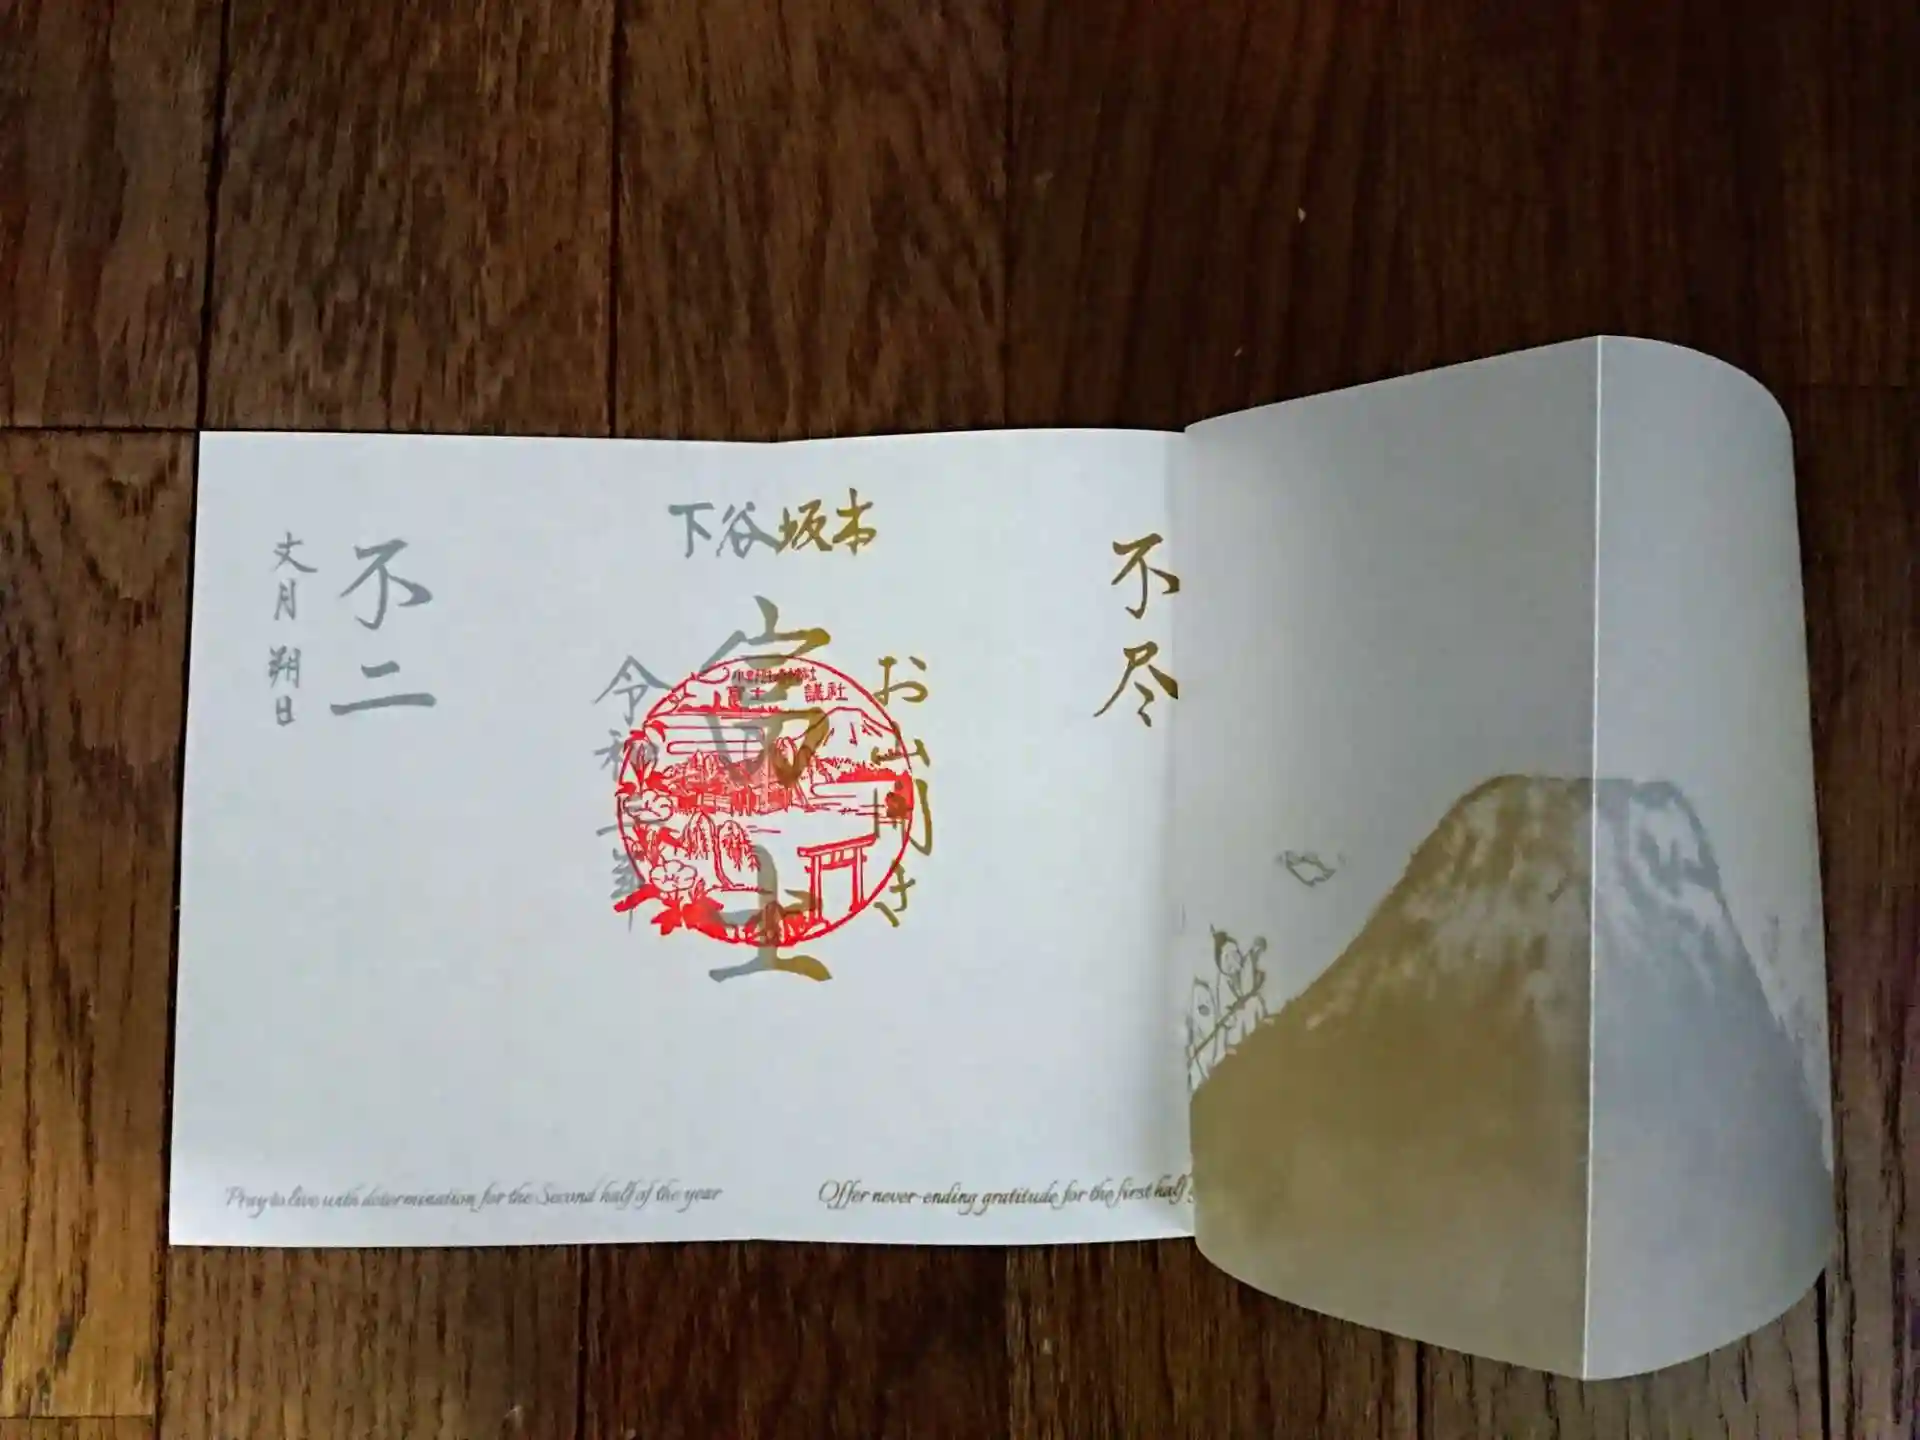 下谷坂本
不尽
お山開き
富士
令和
年
不二
文月 朔日
富士 講社
Pray to live with determination for the Second half of the year
Offer never-ending gratitude for the first half